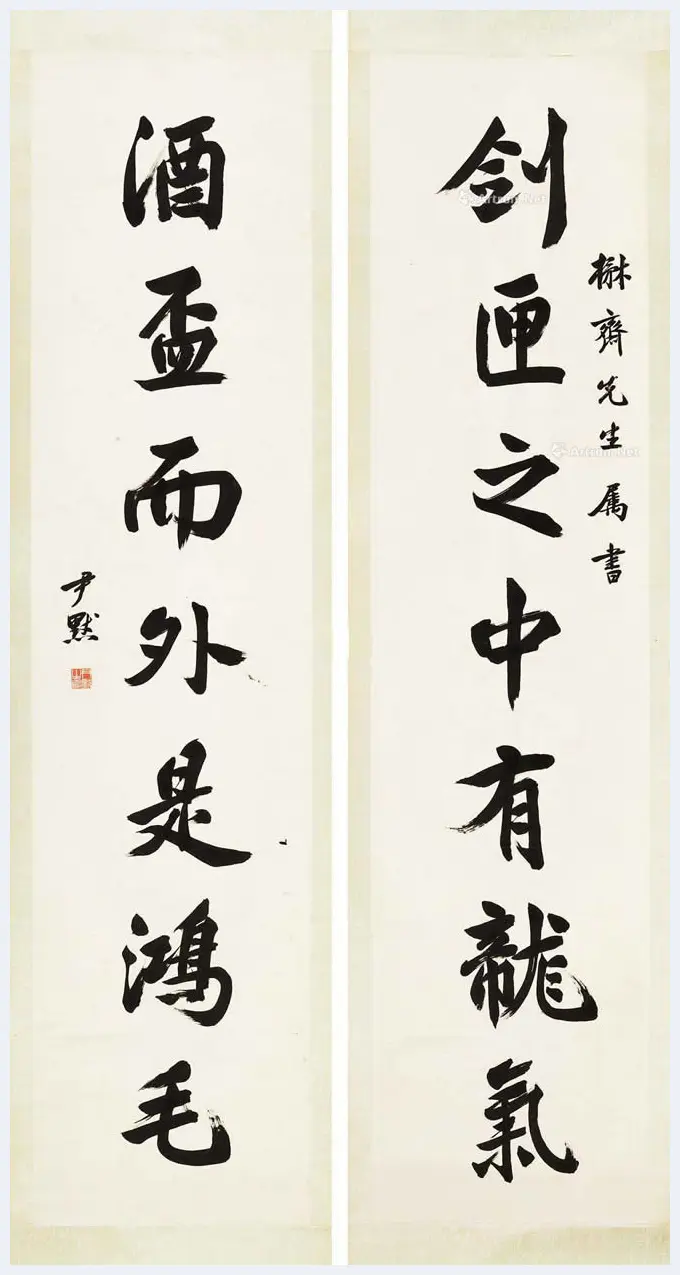 楙齊先生属書
剑匣之中有龍氣
酒盃而外是鴻毛
尹默
Artron.Net
Artron.Net